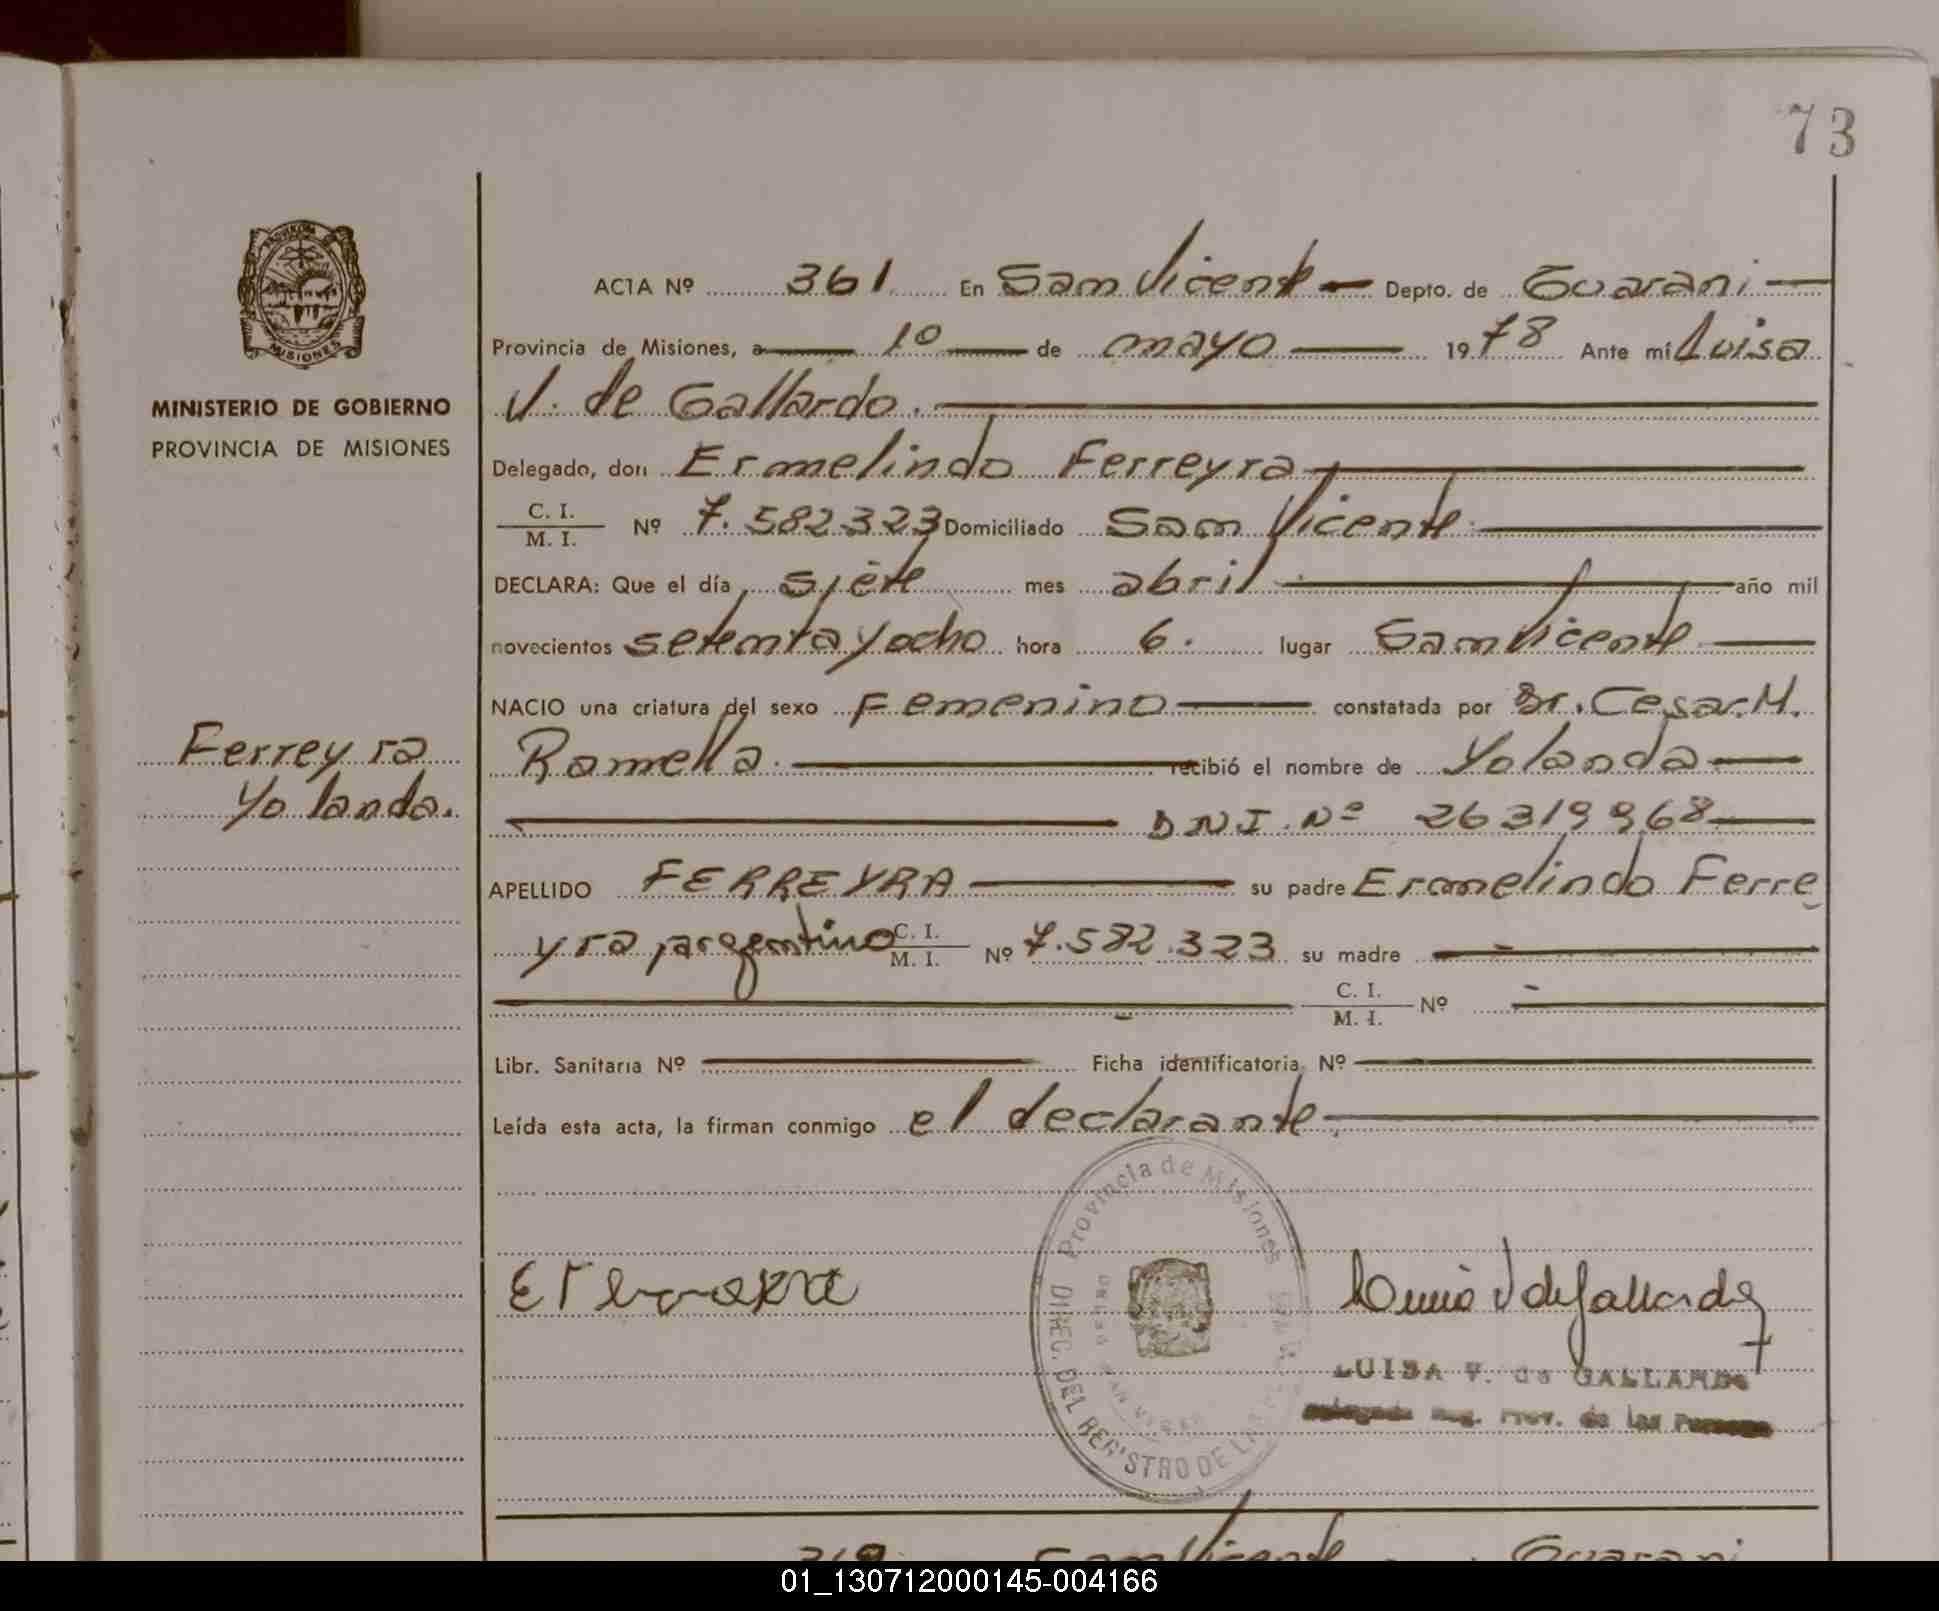 73
PROVINCIA DE
MISIONES
MINISTERIO DE GOBIERNO
PROVINCIA DE MISIONES
Ferreyra
Yolanda.
ACTA Nº 361 En San Vicente Depto. de Guarani
Provincia de Misiones, a 10 de mayo 1978 Ante mí Luisa
V. de Gallardo.
Delegado, don Ermelindo Ferreyra
C. I.
M. I. Nº 7.582.323 Domiciliado San Vicente
DECLARA: Que el día siete mes abril año mil
novecientos setenta y ocho hora 6. lugar San Vicente
NACIO una criatura del sexo Femenino constatada por Dr. Cesar. M.
Ramella. recibió el nombre de Yolanda
DNI. Nº 26319968
APELLIDO FERREYRA su padre Ermelindo Ferre
yra, argentino C. I.
M. I. Nº 7.582.323 su madre
C. I.
M. I. Nº
Libr. Sanitaria Nº Ficha identificatoria Nº
Leída esta acta, la firman conmigo el declarante.
Provincia de Misiones
DIREC. DEL REGISTRO DE LAS
V de Gallardo
LUISA V. de GALLARDO
Delegada Reg. Prov. de las Personas
San Vicente Guarani
01_130712000145-004166